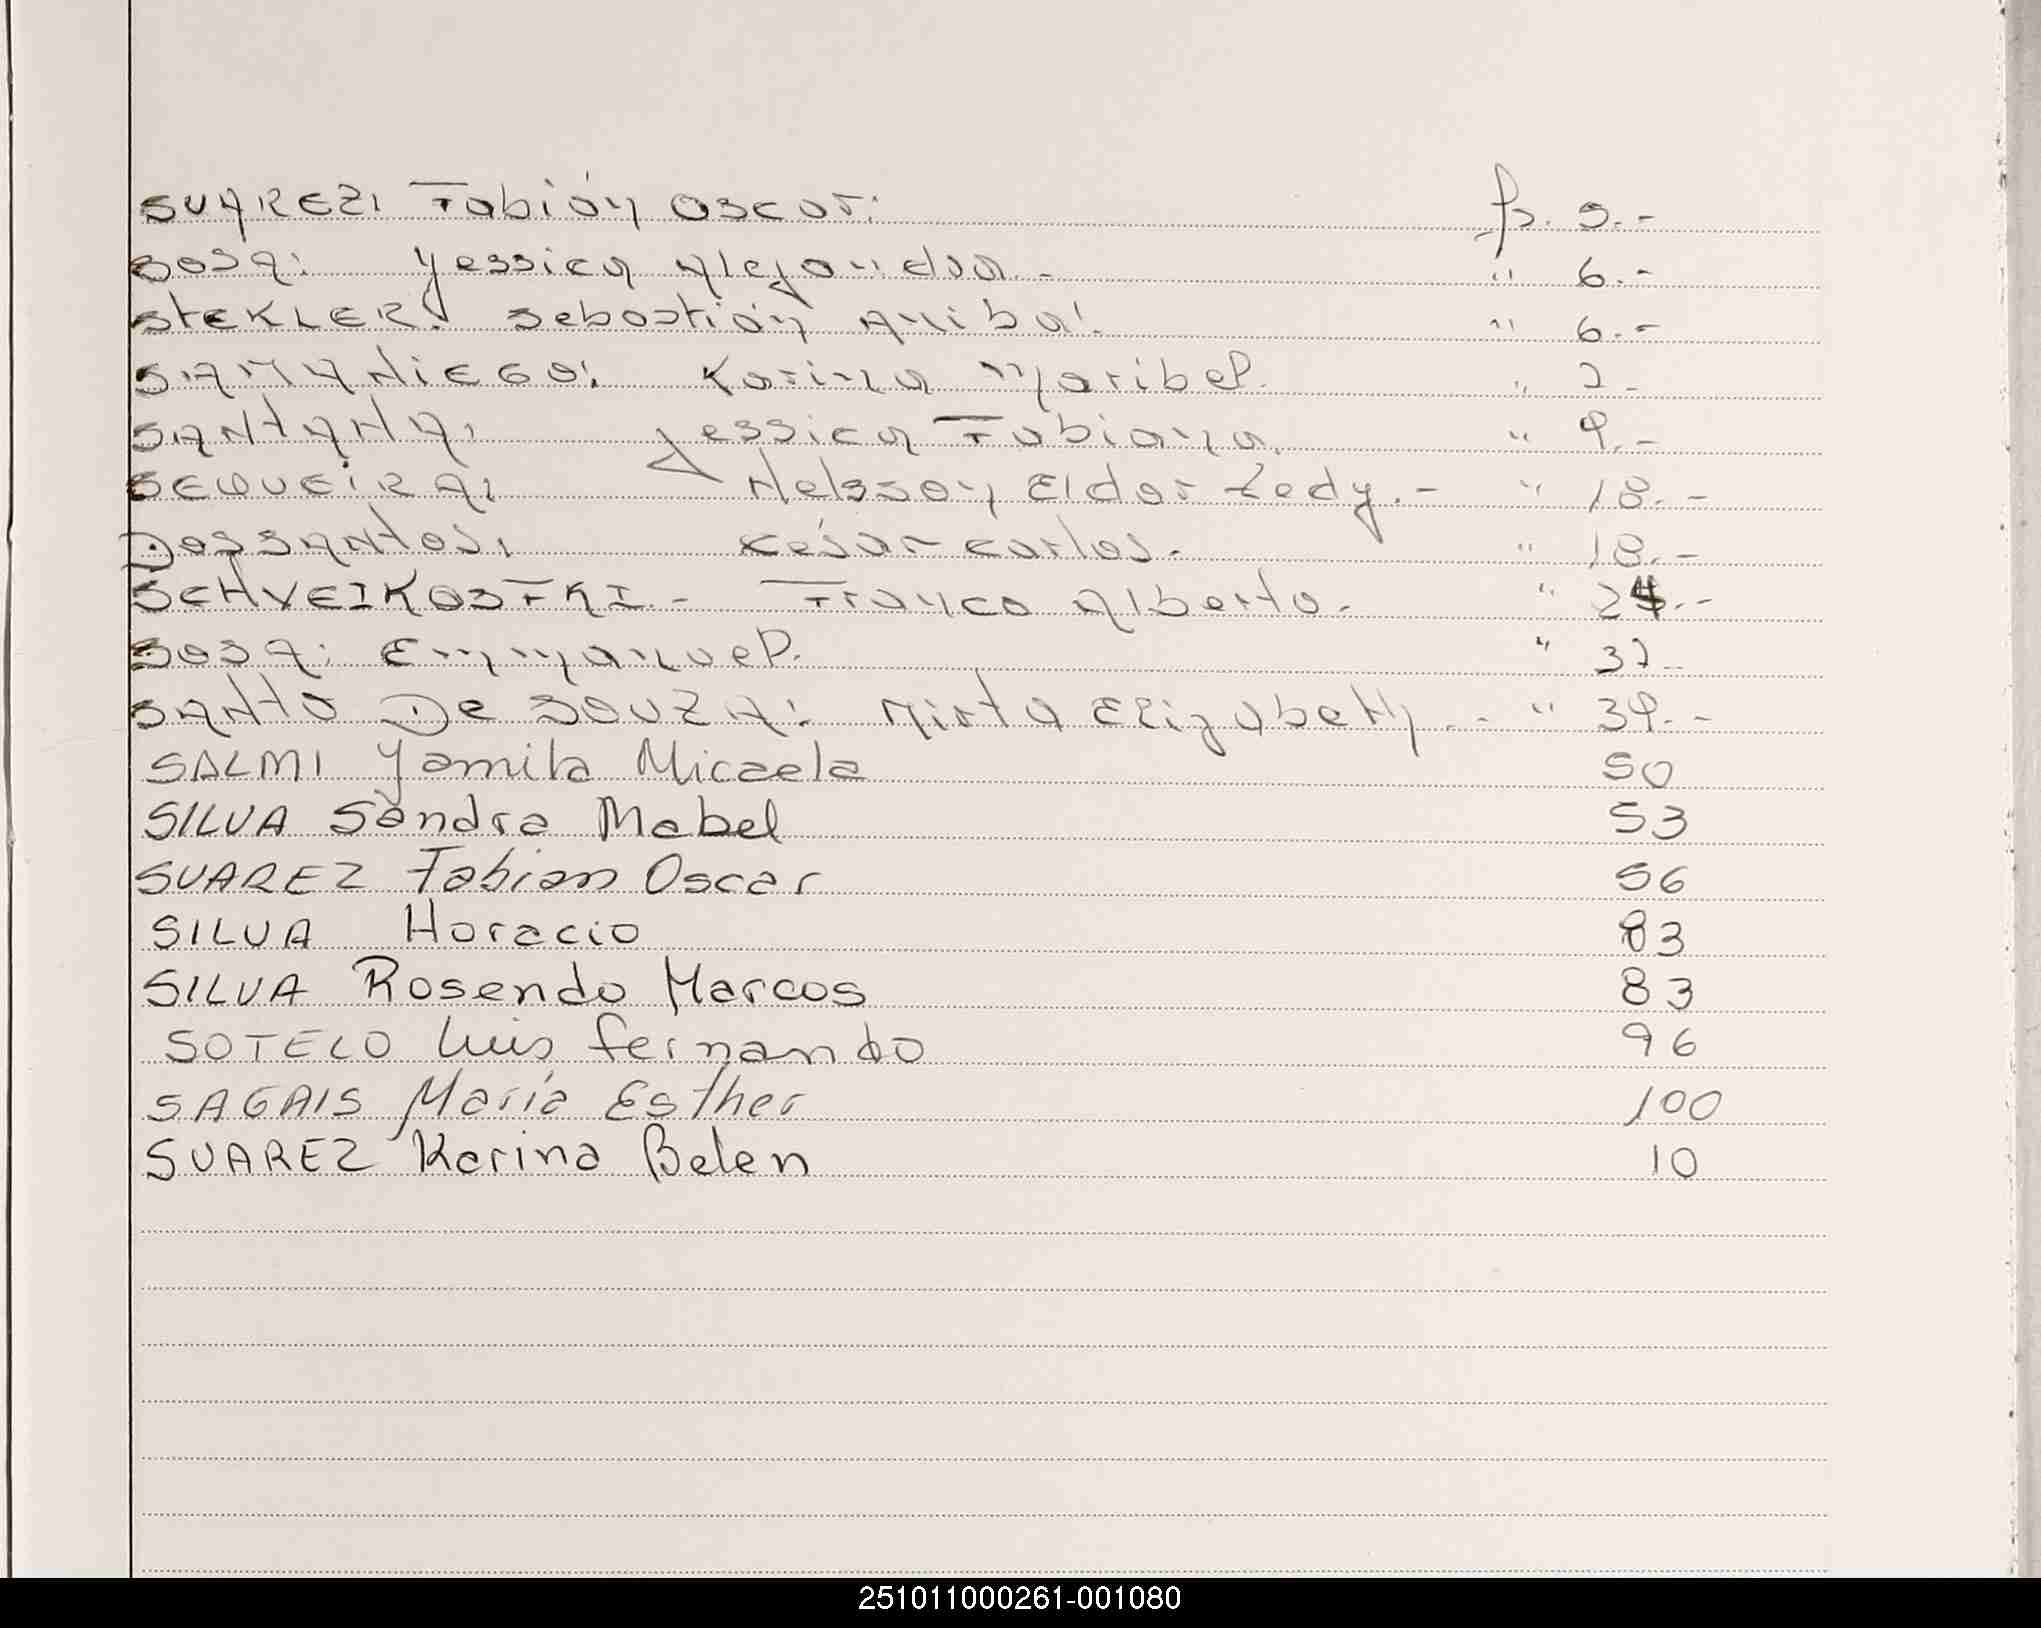 SUAREZ: Fabián Oscar: fs. 5.-
SOSA: Yessica Alejandra.- " 6.-
STEKLER: Sebastián Anibal. " 6.-
SAMANIEGO: Karina Maribel. " 7.-
SANTANA: Jessica Fabiana. " 9.-
SEQUEIRA: Nelsson Eldor Ledy.- " 18.-
DOSSANTOS: César Carlos. " 18.-
SCHVEIKOSFKI.- Franco Alberto. " 24.-
SOSA: Emmanuel. " 37.-
SANTO De SOUZA: Mirta Elizabeth.- " 39.-
SALMI Yamila Micaela 50
SILVA Sandra Mabel 53
SUAREZ Fabian Oscar 56
SILVA Horacio 83
SILVA Rosendo Marcos 83
SOTELO Luis Fernando 96
SAGAIS María Esther 100
SUAREZ Karina Belen 10
251011000261-001080